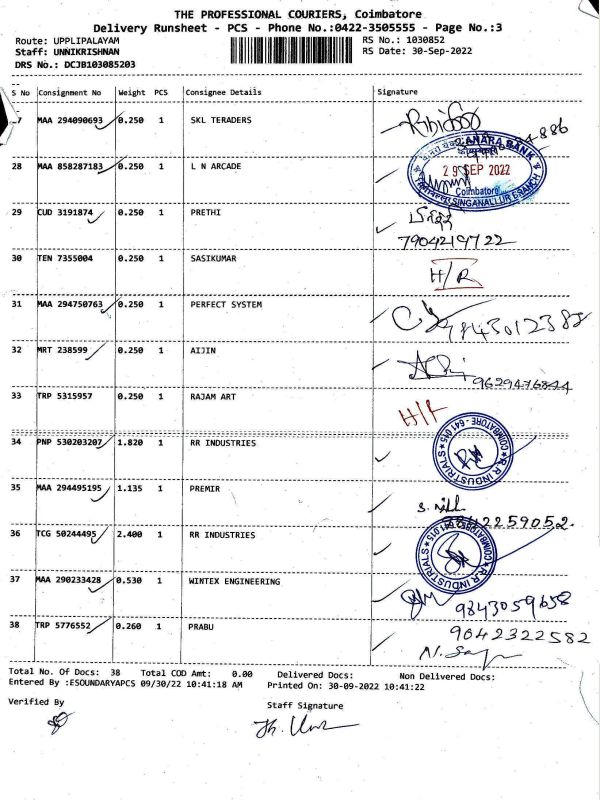 THE PROFESSIONAL COURIERS, Coimbatore
Delivery Runsheet - PCS - Phone No.:0422-3505555 - Page No.:3
Route: UPPLIPALAYAM
Staff: UNNIKRISHNAN
DRS No.: DCJB103085203
RS No.: 1030852
RS Date: 30-Sep-2022
S No Consignment No Weight PCS Consignee Details Signature
7 MAA 294090693 0.250 1 SKL TERADERS
28 MAA 858287183 0.250 1 L N ARCADE
29 SEP 2022
Coimbatore
SINGANALLUR BRANCH
29 CUD 3191874 0.250 1 PRETHI
7904219722
30 TEN 7355004 0.250 1 SASIKUMAR H/R
31 MAA 294750763 0.250 1 PERFECT SYSTEM
9843012388
32 MRT 238599 0.250 1 AIJIN
9629476844
33 TRP 5315957 0.250 1 RAJAM ART
34 PNP 530203207 1.820 1 RR INDUSTRIES
R.R INDUSTRIALS COIMBATORE - 641 015
35 MAA 294495195 1.135 1 PREMIR
36 TCG 50244495 2.400 1 RR INDUSTRIES
R.R INDUSTRIALS COIMBATORE 641 015
37 MAA 290233428 0.530 1 WINTEX ENGINEERING
9843059658
38 TRP 5776552 0.260 1 PRABU
9042322582
Total No. Of Docs: 38 Total COD Amt: 0.00 Delivered Docs: Non Delivered Docs:
Entered By :ESOUNDARYAPCS 09/30/22 10:41:18 AM Printed On: 30-09-2022 10:41:22
Verified By
Staff Signature